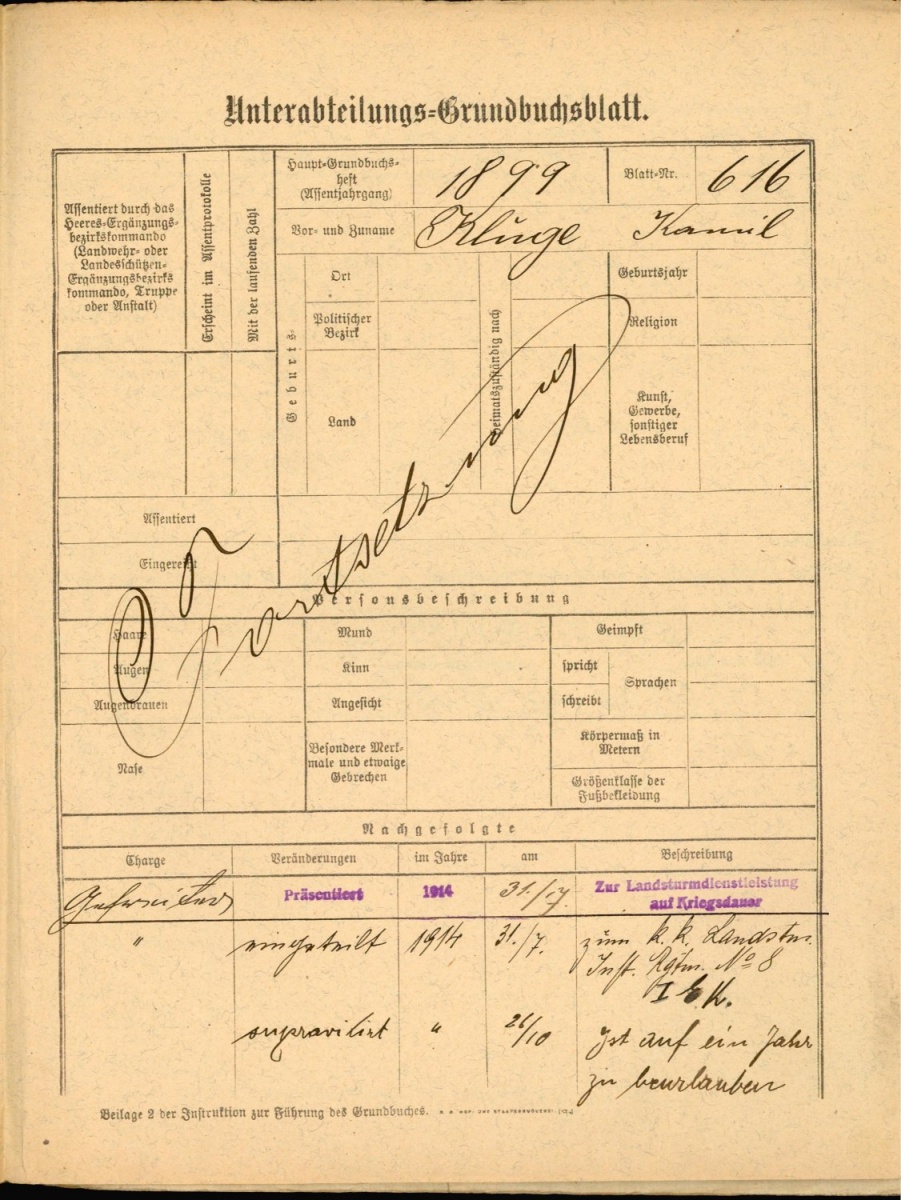 Unterabteilungs-Grundbuchsblatt.
Assentiert durch das
Heeres-Ergänzungs-
bezirkskommando
(Landwehr- oder
Landesschützen-
Ergänzungsbezirks
kommando, Truppe
oder Anstalt)
Erscheint im Assentprotokolle
Mit der laufenden Zahl
Haupt-Grundbuchs-
heft
(Assentjahrgang)
1899
Blatt-Nr.
616
Vor- und Zuname
Kluge Kamil
Geburts-
Ort
Politischer
Bezirk
Land
Heimatszuständig nach
Geburtsjahr
Religion
Kunst,
Gewerbe,
sonstiger
Lebensberuf
Fortsetzung
Assentiert
Eingereiht
Personsbeschreibung
Haare
Augen
Augenbrauen
Nase
Mund
Kinn
Angesicht
Besondere Merk-
male und etwaige
Gebrechen
Geimpft
spricht
schreibt
Sprachen
Körpermaß in
Metern
Größenklasse der
Fußbekleidung
Nachgefolgte
Charge Veränderungen im Jahre am Beschreibung
Gefreiter Präsentiert 1914 31./7. Zur Landsturmdienstleistung
auf Kriegsdauer
" eingeteilt 1914 31./7. zum k. k. Landstm.
Inft. Rgtm. No 8
I E.K.
supravilirt " 26/10 Ist auf ein Jahr
zu beurlauben
Beilage 2 der Instruktion zur Führung des Grundbuches.